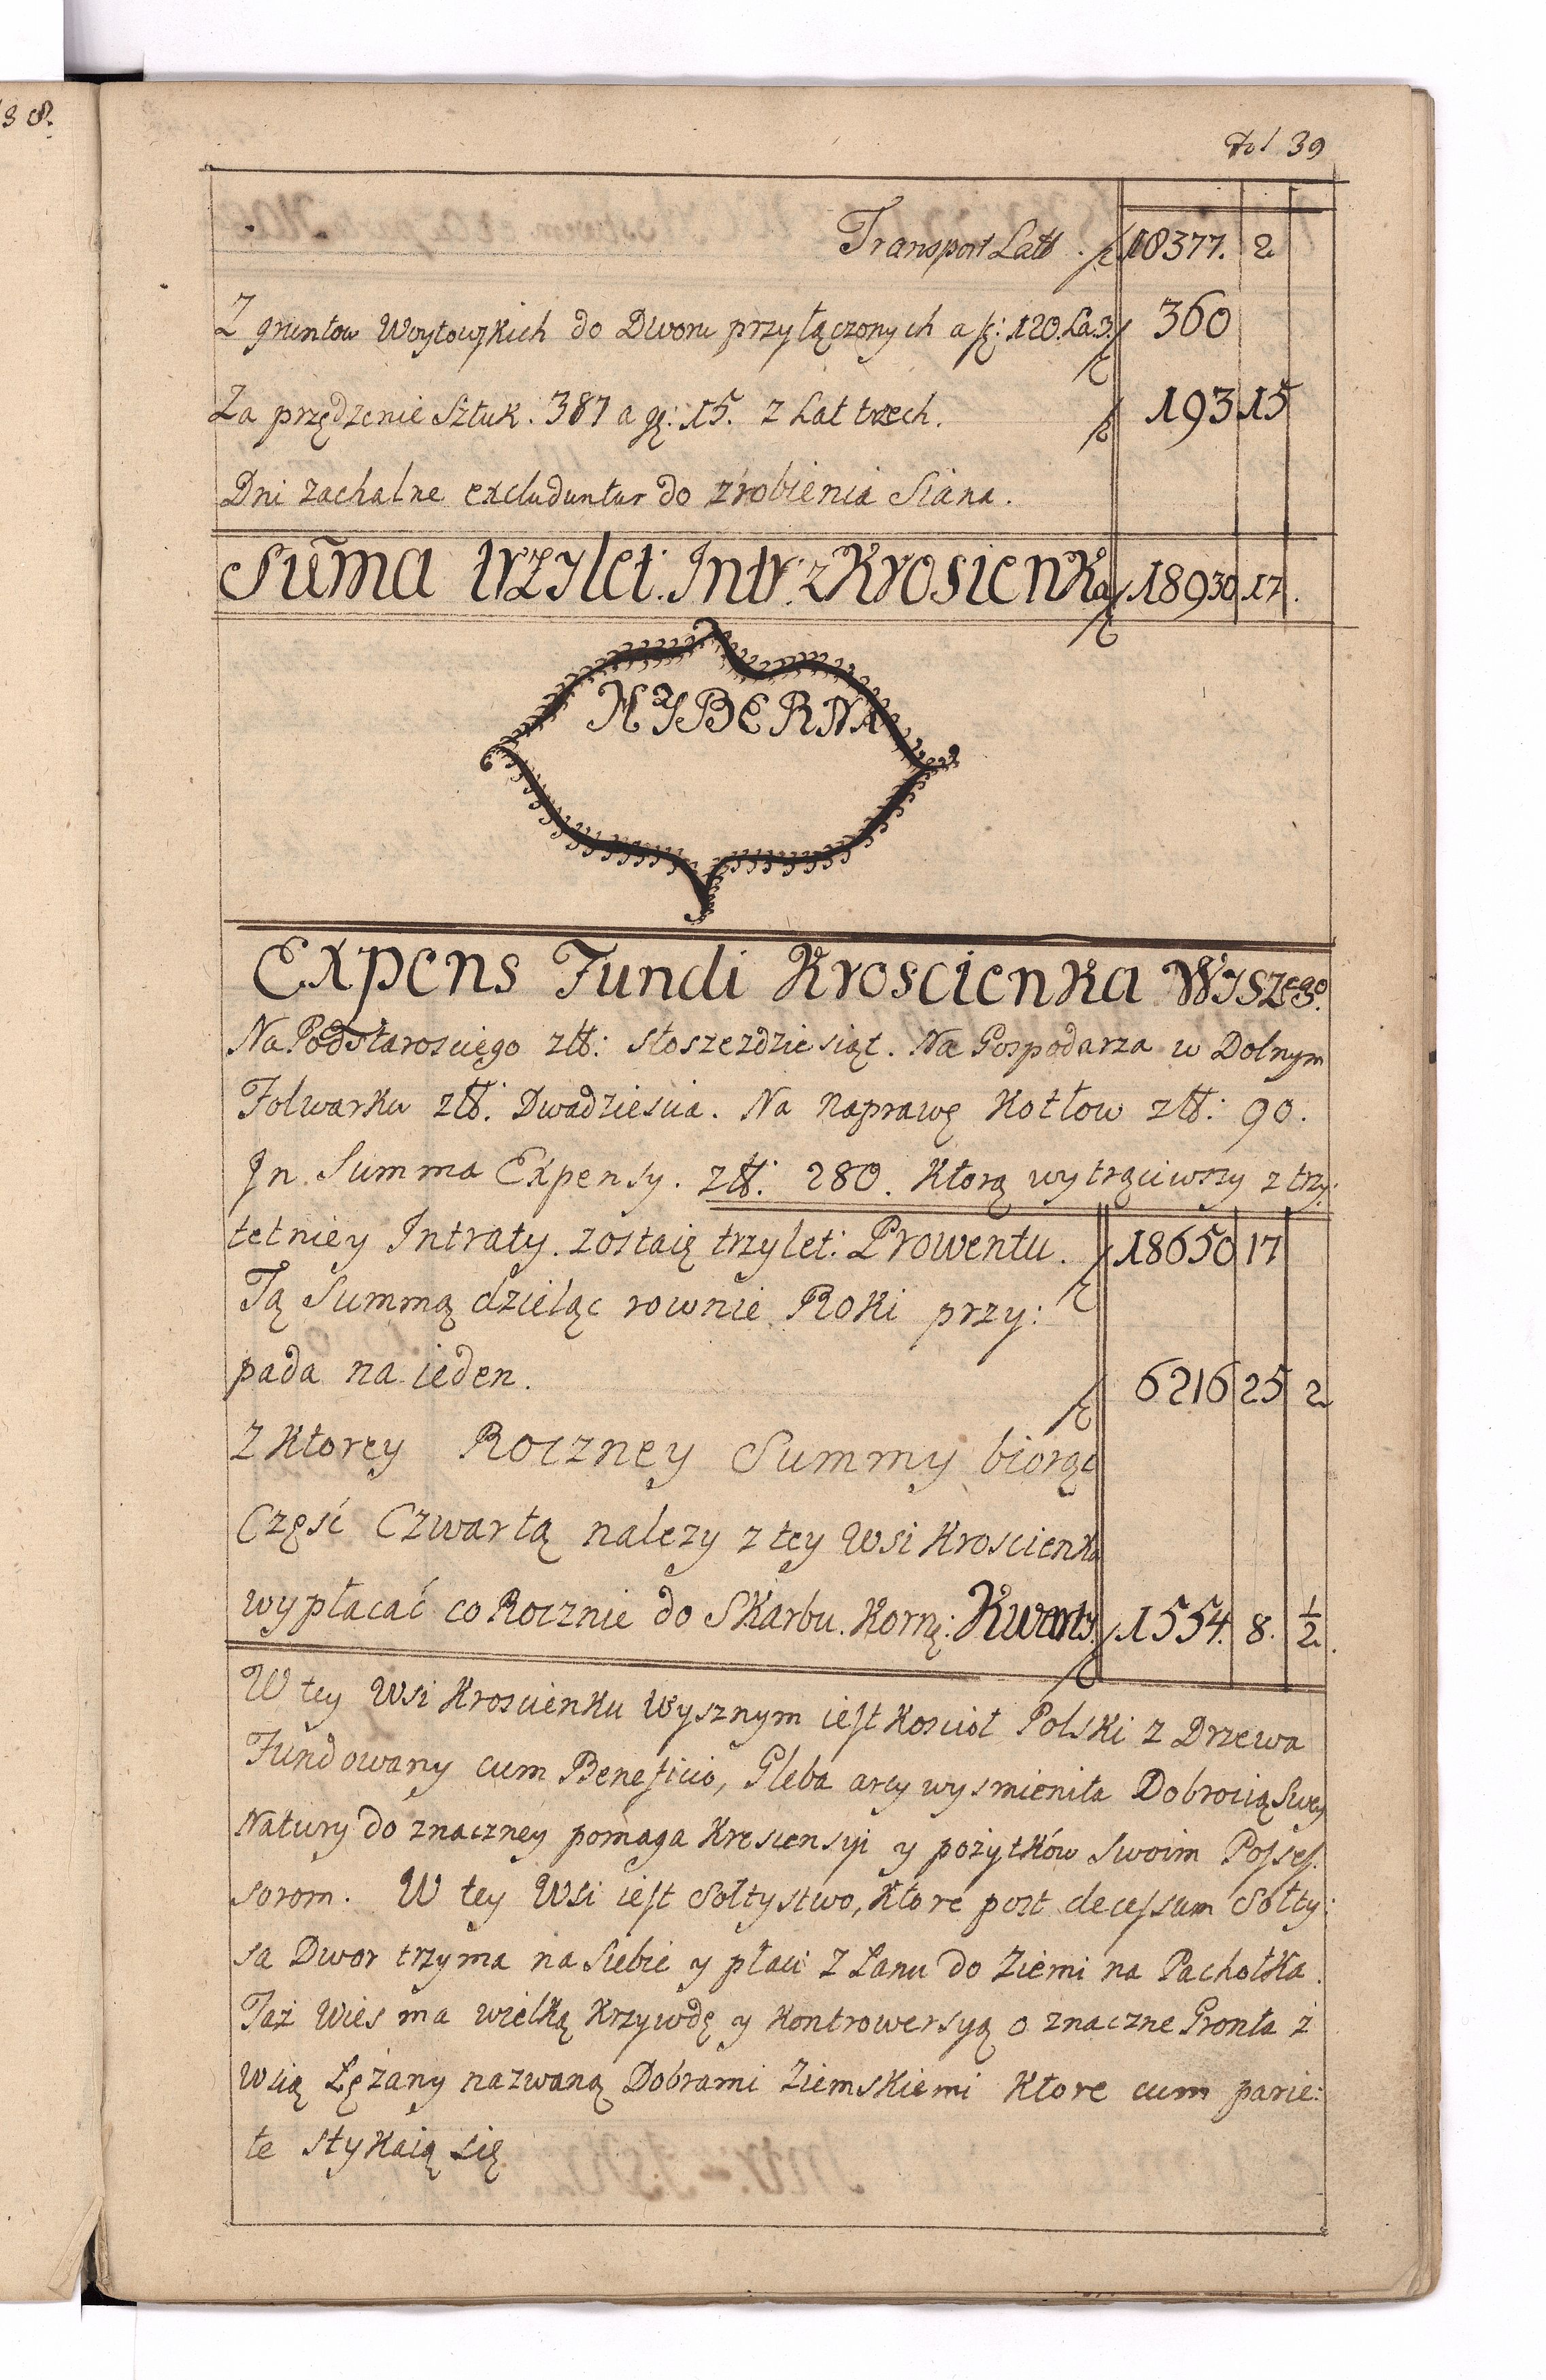 38.
Fol 39
Transport Latt. 18377. 2
Z gruntow Woytowskich do Dworu przyłączonych a 120. La:3. 360
Za przędzenie Sztuk. 387 a gg: 15. z Lat trzech. 193 15
Dni zachalne excluduntur do zrobienia Siana.
Sum̃a trzylet: Intr: z Krosienka 18930 17.
HYBERNA
Expens Fundi Kroscienka Wyszego.
Na Podstarosciego ztt: stoszezdziesiąt. Na Gospodarza w Dolnym
Folwarku ztt: Dwadziescia. Na Naprawę Kotłow ztt: 90.
Jn Summa Expensy. ztt: 280. Ktorą wytrąciwszy z trzy:
letniey Intraty. zostaię trzylet: Prowentu. 18650 17
Tą Summą dzieląc rownie Roki przy:
pada na ieden. 6216 25 2
Z Ktorey Roczney Summy biorąc
Część Czwartą nalezy z tey Wsi Kroscienka
wypłacać co Rocznie do Skarbu. Korrę: Kwarty. 1554. 8. ½.
W tey Wsi Kroscienku Wysznym iest Koscioł Polski z Drzewa
Fundowany cum Beneficio, Gleba arcy wysmienita Dobrocią Swey
Natury do znaczney pomaga Krescensyi y pożytków Swoim Posses:
sorom. W tey Wsi iest Sołtystwo, Ktore post decessum Sołty:
sa Dwor trzyma na Siebie y płaci z Łanu do Ziemi na Pachołka.
Taż Wies ma wielką Krzywdę y Kontrowersyą o znaczne Gronta z
Wsią Lężany nazwaną Dobrami Ziemskiemi Ktore cum parie:
te stykaią się